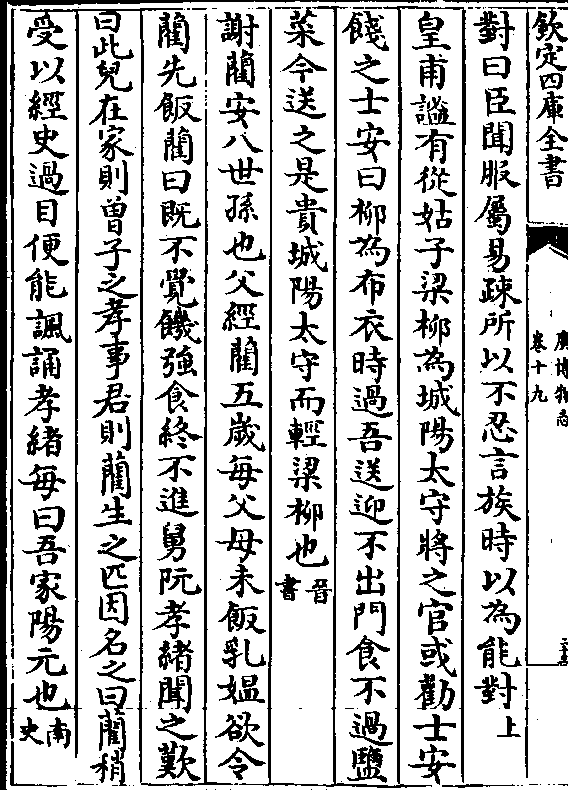 欽定四庫全書
廣博物志
卷十九
對曰臣聞服屬易疎所以不忍言族時以為能對上
皇甫謐有從姑子梁柳為城陽太守將之官或勸士安
餞之士安曰柳為布衣時過吾送迎不出門食不過鹽
菜今送之是貴城陽太守而輕梁柳也晉書
謝藺安八世孫也父經藺五歲每父母未飯乳媼欲令
藺先飯藺曰既不覺饑強食終不進舅阮孝緒聞之歎
曰此兒在家則曾子之孝事君則藺生之匹因名之曰藺稍
受以經史過目便能諷誦孝緒每曰吾家陽元也南史